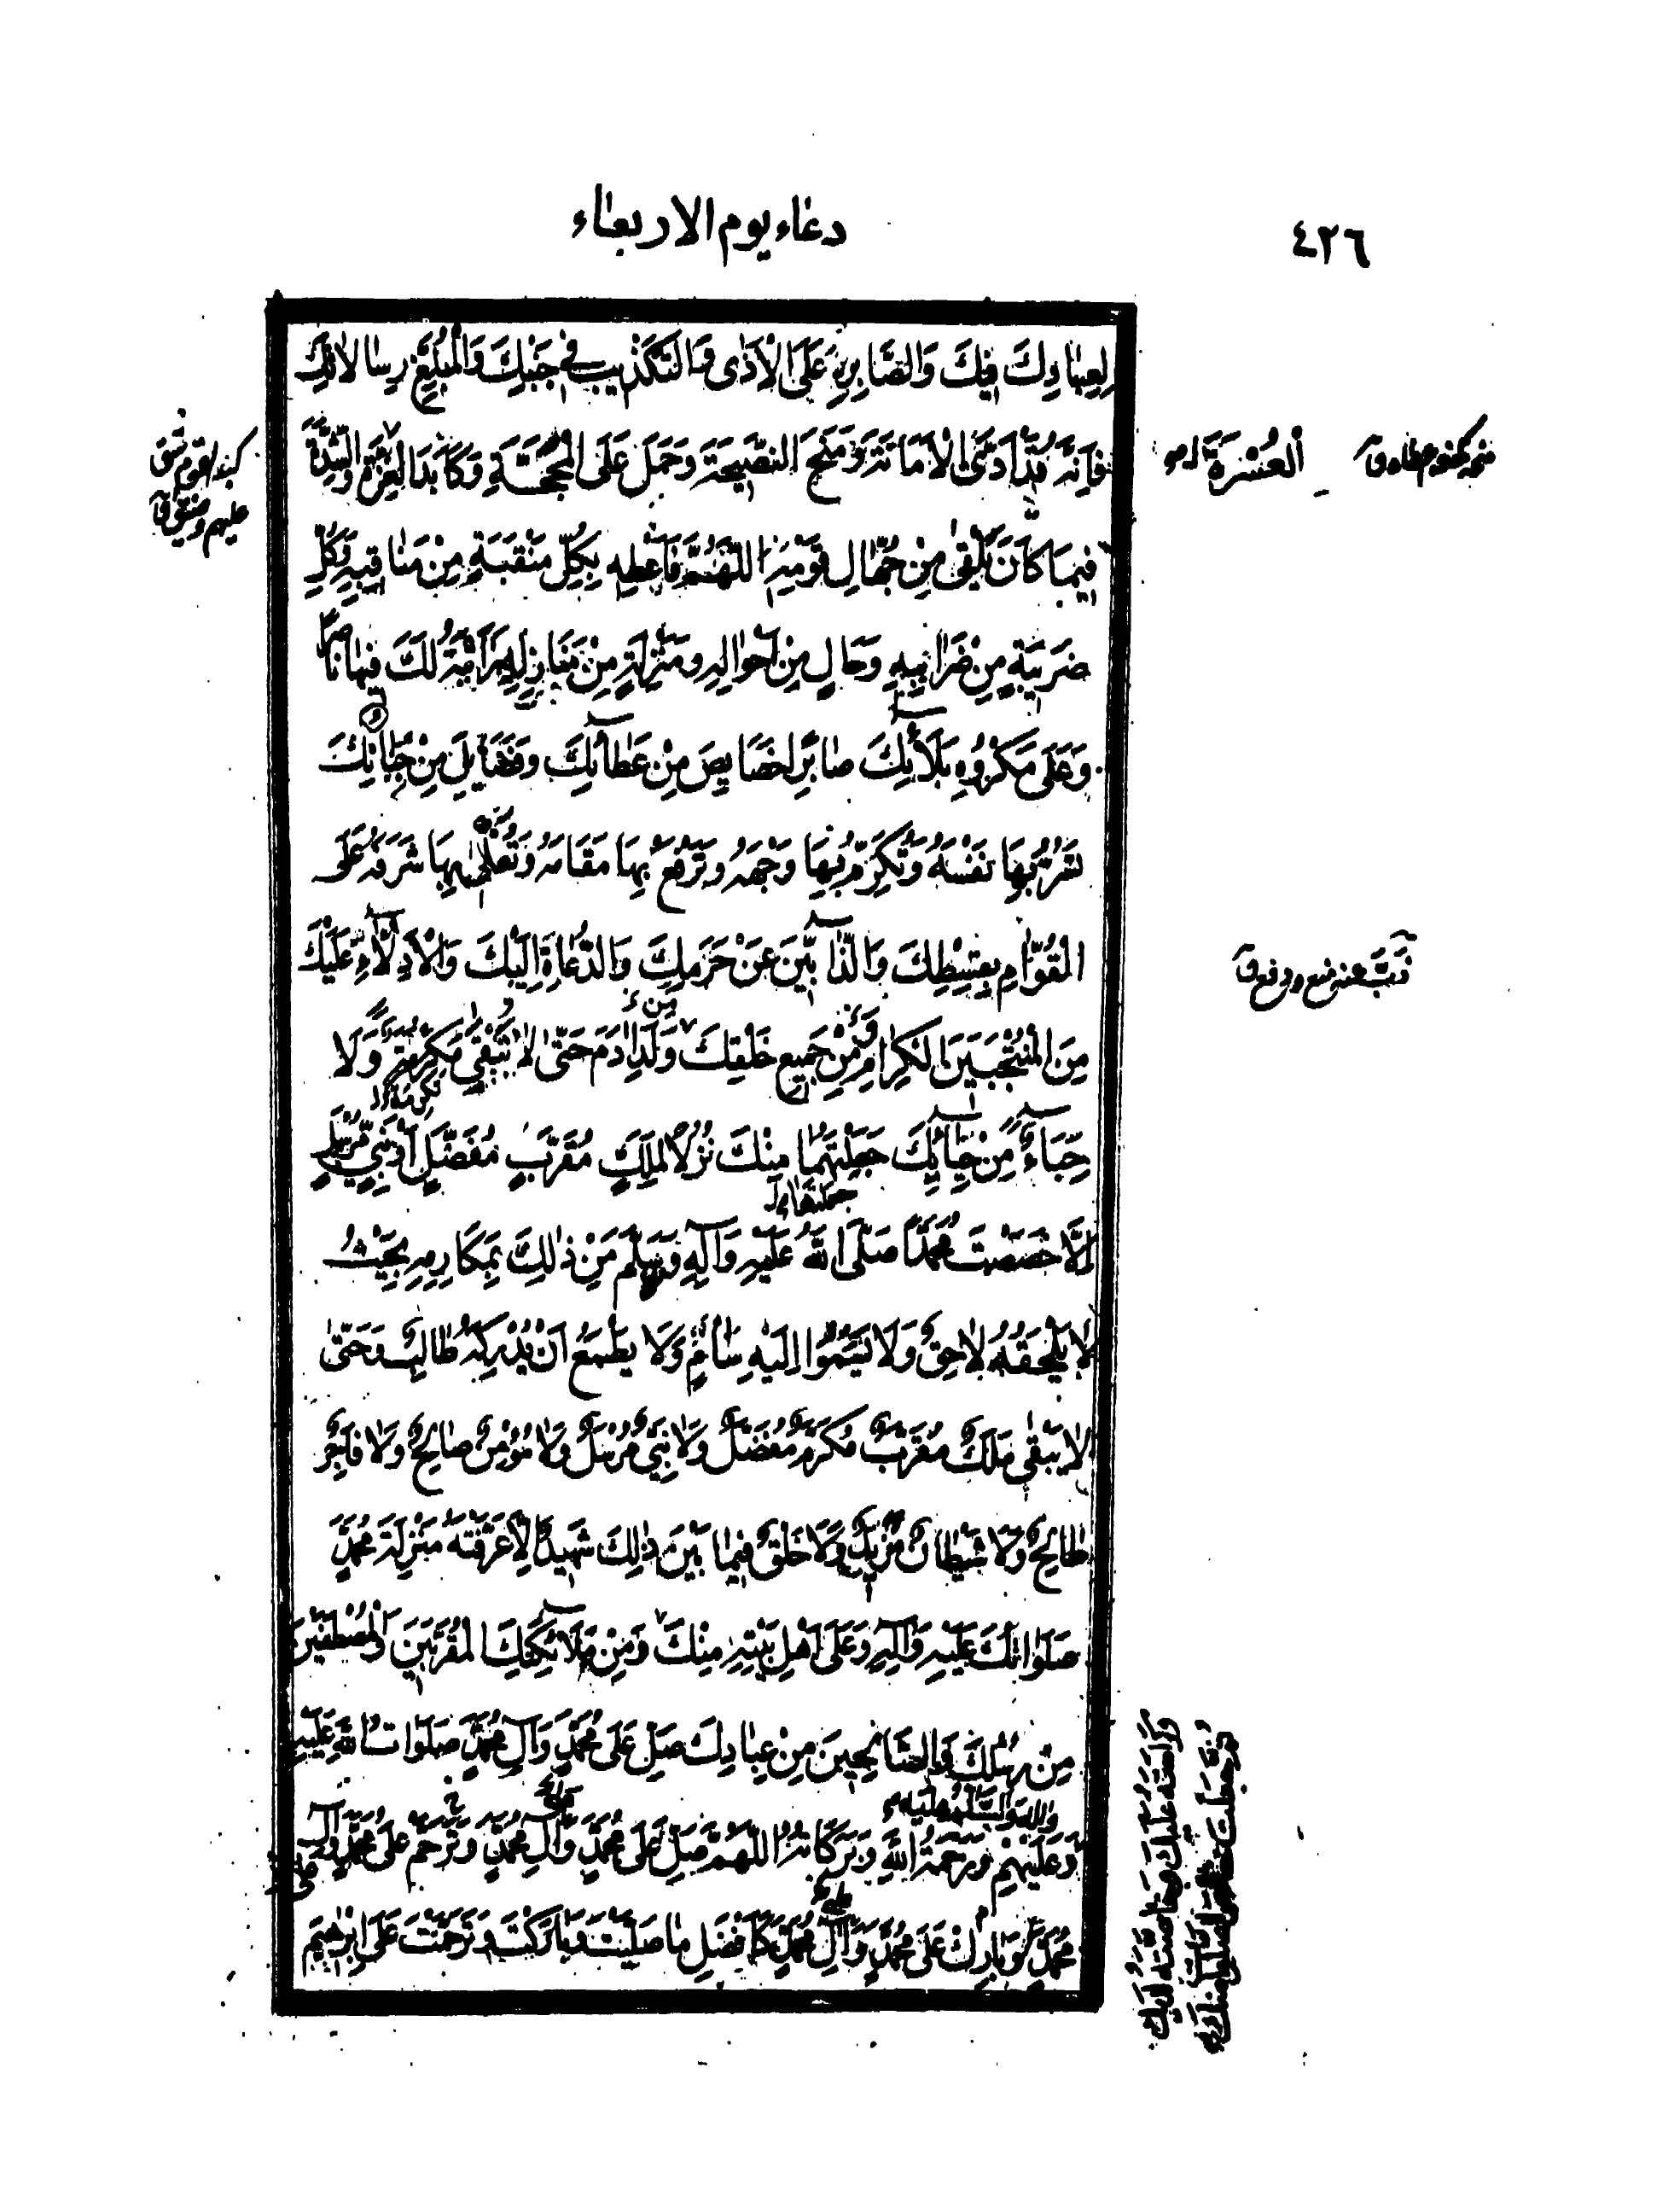 ٤٢٦
دعاء يوم الاربعاء
لِعِبادِكَ فيكَ وَالصَّابِرِ عَلَى الْاَذى وَالتَّكْذيبِ فى جَنْبِكَ وَالْمُبَلِّغِ رِسالاتِكَ
فَاِنَّهُ قَدْ اَدَّى الْاَمانَةَ وَمَنَحَ النَّصيحَةَ وَحَمَلَ عَلَى الْمَحَجَّةِ وَكابَدَ الْعِزَّةَ وَالشِّدَّةَ
فيما كانَ يَلْقى مِنْ جُهّالِ قَوْمِهِ اَللّهُمَّ فَاَعْطِهِ بِكُلِّ مَنْقَبَةٍ مِنْ مَناقِبِهِ وَكُلِّ
ضَريبَةٍ مِنْ ضَرائِبِهِ وَحالٍ مِنْ اَحْوالِهِ وَمَنْزِلَةٍ مِنْ مَنازِلِهِ رَاَيْتَهُ لَكَ فيها ناصِرًا
وَعَلى مَكْرُوهِ بَلآئِكَ صابِرًا خَصايِصَ مِنْ عَطآئِكَ وَفَضايِلَ مِنْ حِبائِكَ
تَسُرُّ بِها نَفْسَهُ وَتُكَرِّمُ بِها وَجْهَهُ وَتَرْفَعُ بِها مَقامَهُ وَتُعْلى بِها شَرَفَهُ عَلَى
الْقُوّامِ بِقِسْطِكَ وَالذّآبّينَ عَنْ حَرَمِكَ وَالدُّعاةِ اِلَيْكَ وَالْاَدِلّآءِ عَلَيْكَ
مِنَ الْمُنْتَجَبينَ الْكِرامِ وَمِنْ جَميعِ خَلْقِكَ وَلَدِ ادَمَ حَتّى لا تُبْقِىَ مَكْرُمَةً وَلا
حِبآءً مِنْ حِبآئِكَ جَعَلْتَهُما مِنْكَ نُزُلًا لِمَلَكٍ مُقَرَّبٍ مُفَضَّلٍ اَوْ نَبِىٍّ مُرْسَلٍ
اِلّا خَصَصْتَ مُحَمَّدًا صَلَّى اللهُ عَلَيْهِ وَآلِهِ وَسَلَّمَ مِنْ ذلِكَ بِمَكارِمِهِ بِحَيْثُ
لا يَلْحَقُهُ لاحِقٌ وَلا يَسْمُوا اِلَيْهِ سامٍ وَلا يَطْمَعُ اَنْ يُدْرِكَهُ طالِبٌ وَحَتّى
لا يَبْقى مَلَكٌ مُقَرَّبٌ مُكَرَّمٌ مُفَضَّلٌ وَلا نَبِىٌّ مُرْسَلٌ وَلا مُؤْمِنٌ صالِحٌ وَلا فاجِرٌ
طالِحٌ وَلا شَيْطانٌ مَريدٌ وَلا خَلْقٌ فيما بَيْنَ ذلِكَ شَهيدٌ اِلّا عَرَّفْتَهُ مَنْزِلَةَ مُحَمَّدٍ
صَلَواتُكَ عَلَيْهِ وَآلِهِ وَعَلى اَهْلِ بَيْتِهِ مِنْكَ وَمِنْ مَلآئِكَتِكَ الْمُقَرَّبينَ الْمُصْطَفَيْنَ
مِنْ رُسُلِكَ وَالصّالِحينَ مِنْ عِبادِكَ صَلِّ عَلى مُحَمَّدٍ وَآلِ مُحَمَّدٍ صَلَواتُ اللهِ عَلَيْهِ
وَعَلَيْهِمْ وَرَحْمَةُ اللهِ وَبَرَكاتُهُ اَللّهُمَّ صَلِّ عَلى مُحَمَّدٍ وَآلِ مُحَمَّدٍ وَتَرَحَّمْ عَلى مُحَمَّدٍ وَآلِ
مُحَمَّدٍ وَبارِكْ عَلى مُحَمَّدٍ وَآلِ مُحَمَّدٍ كَاَفْضَلِ ما صَلَّيْتَ وَبارَكْتَ وَتَرَحَّمْتَ عَلى اِبْرهيمَ
اَلْعُسْرَةَ